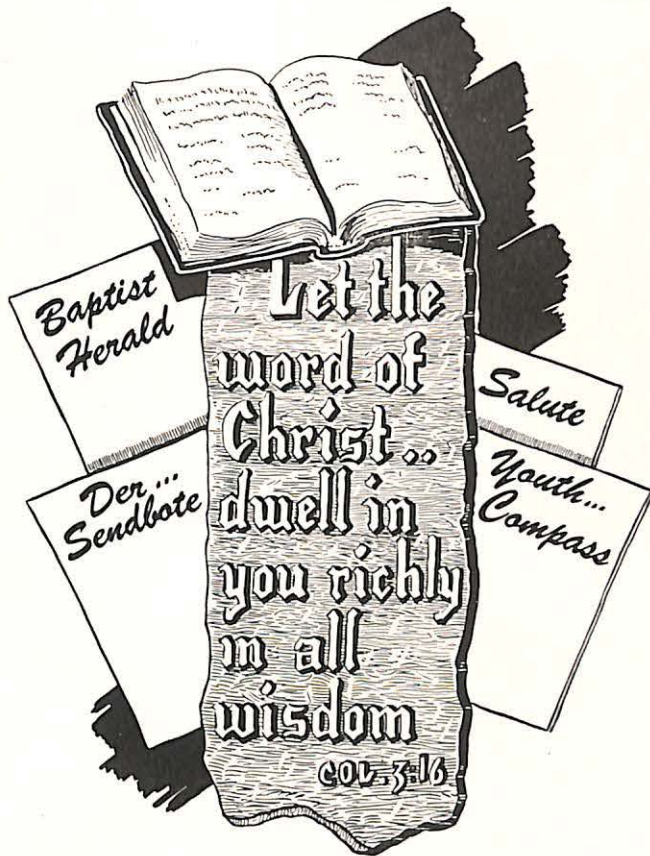 Baptist
Herald
Der...
Sendbote
Let the
word of
Christ..
dwell in
you richly
in all
wisdom
COL. 3:16
Salute
Youth...
Compass